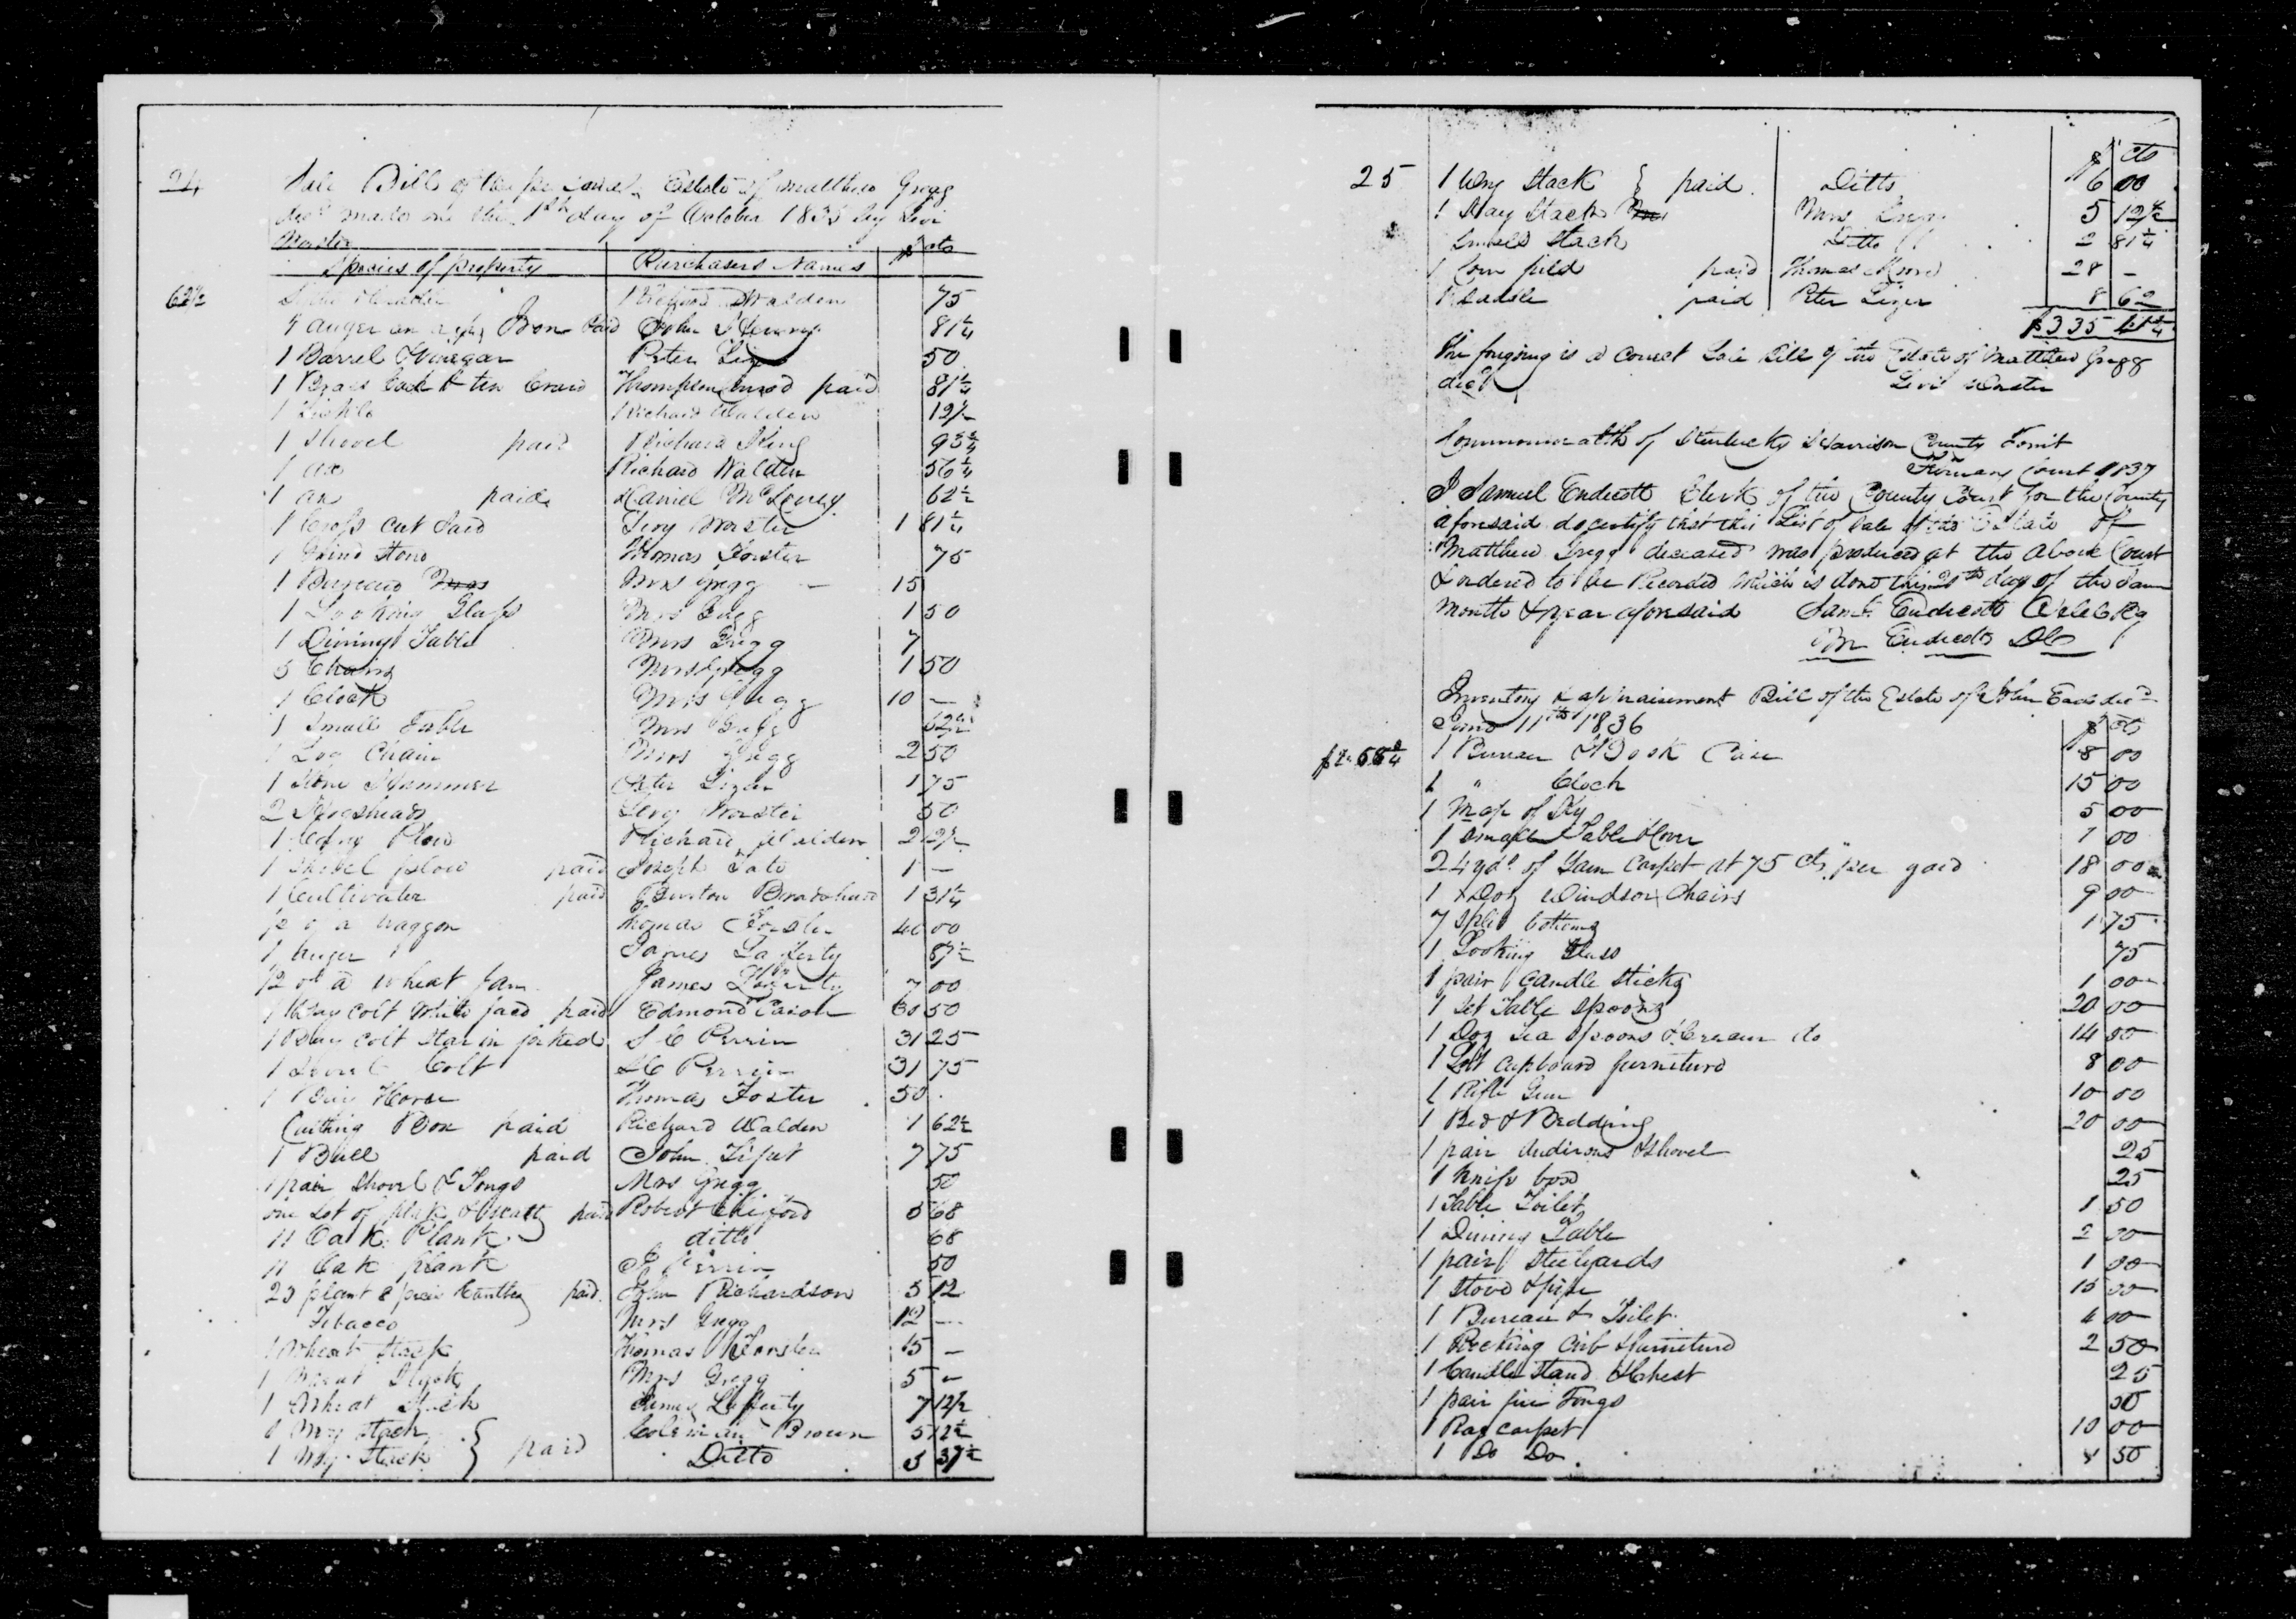 24
Sale Bill of the personal Estate of Matthew Gregg
decd made on the 1st day of October 1835 by Levi
Worster
Species of property Purchasers Names $ cts
62½ Richard Walden 75
4 auger an Iron Paid John 81¼
1 Barrel Vinegar Peter Lizer 50
1 Brass Cock & ten Thompson paid 81¼
1 Sickle Richard Walden 12½
1 Shovel paid Richard King 93¾
1 ax Richard Walden 56¼
1 ax paid Daniel 62½
1 Cross Cut Saw Levy Worster 1 81¼
1 Grind Stone Thomas Forster 75
1 Bureau Mrs Gregg 15
1 Looking Glass Mrs Gregg 1 50
1 Dining Table Mrs Gregg 7
Chairs Mrs Gregg 1 50
1 Clock Mrs Gregg 10 —
1 Small Table Mrs Gregg 62½
1 Log Chain Mrs Gregg 2 50
1 Stone Hammer Peter Lizer 1 75
2 Hogsheads Levy Worster 50
1 Cary Plow Richard Walden 2 12½
1 Shovel plow paid Joseph Tate 1 —
1 Cultivator paid Burton Bradshaw 1 31¼
½ of a waggon Thomas Forster 40 00
1 Auger James Laferty 87½
½ of a wheat fan James Laferty 7 00
1 Bay Colt White face paid Edmond 30 50
1 Bay Colt Star in forhed S C Perrin 31 25
1 Sorrel Colt S C Perrin 31 75
1 Bay Horse Thomas Foster 50
Cutting Box paid Richard Walden 1 62½
1 Bull paid John 7 75
1 pair Shovel & Tongs Mrs Gregg 50
one Lot of plank & paid Robert 5 68
11 Oak Plank ditto 68
11 Oak plank Perrin 50
23 plank & paid John Richardson 5 12
Tobacco Mrs Gregg 12 —
1 Wheat Stack Thomas Forster 15 —
1 Wheat Stack Mrs Gregg 5 —
1 Wheat Stack James Lafferty 7 12½
1 Stack Coleman Brown 5 12½
1 Stack } paid Ditto 5 37½
$ cts
25 1 Stack } paid Ditto 6 00
1 Hay Stack Mrs Gregg 5 12½
Stack Ditto 2 81¼
1 Corn field paid Thomas Moore 28 —
1 Saddle paid Peter Lizer 8 62
$335 41¼
The forgoing is a Correct Sale Bill of the Estate of Matthew Gregg
decd Levi Worster
Commonwealth of Kentucky Harrison County Towit
February Court 1837
I Samuel Endicott Clerk of the County Court for the County
aforesaid do certify that this List of Sale of the Estate of
Matthew Gregg deceased was produced at the Above Court
& ordered to be Recorded Which is done this 20th day of the Same
Month & year aforesaid Saml Endicott
Wm Endicott DC
Inventory & appraisement Bill of the Estate of John Eads decd
June 11th 1836 $ cts
1 Bureau & Book Case 8 00
1 " Clock 15 00
1 Map of Ky 5 00
1 small Table Cover 1 00
24 yds of Yarn Carpet at 75 cts per yard 18 00
1 Doz Windsor Chairs 9 00
7 split bottoms 1 75
1 Looking Glass 75
1 pair Candle sticks 1 00
1 set Table spoons 20 00
1 Doz Tea spoons & Cream do 14 00
1 Lott Cupboard furniture 8 00
1 Rifle Gun 10 00
1 Bed & Bedding 20 00
1 pair Andirons & shovel 25
1 Knife box 25
1 Table Toilet 1 50
1 Dining Table 2 00
1 pair Steelyards 1 00
1 Stove & pipe 15 00
1 Bureau & Toilet 4 00
1 Rocking Crib & furniture 2 50
1 Candle Stand & Chest 25
1 pair fire Tongs 50
1 Rag carpet 10 00
1 Do Do 8 50